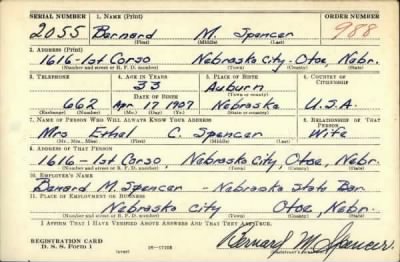 SERIAL NUMBER 1. NAME (Print) ORDER NUMBER
2055 Bernard M. Spencer 988
(First) (Middle) (Last)
2. ADDRESS (Print)
1616-1st Corso Nebraska City-Otoe, Nebr.
(Number and street or R. F. D. number) (Town) (County) (State)
3. TELEPHONE 4. AGE IN YEARS 5. PLACE OF BIRTH 6. COUNTRY OF CITIZENSHIP
33 Auburn
DATE OF BIRTH (Town or county)
662 Apr 17 1907 Nebraska U.S.A.
(Exchange) (Number) (Mo.) (Day) (Yr.) (State or country)
7. NAME OF PERSON WHO WILL ALWAYS KNOW YOUR ADDRESS 8. RELATIONSHIP OF THAT PERSON
Mrs Ethel C. Spencer Wife
(Mr., Mrs., Miss) (First) (Middle) (Last)
9. ADDRESS OF THAT PERSON
1616-1st Corso, Nebraska City, Otoe, Nebr.
(Number and street or R. F. D. number) (Town) (County) (State)
10. EMPLOYER'S NAME
Benard M. Spencer - Nebraska State Bar.
11. PLACE OF EMPLOYMENT OR BUSINESS
Nebraska City Otoe, Nebr.
(Number and street or R. F. D. number) (Town) (County) (State)
I AFFIRM THAT I HAVE VERIFIED ABOVE ANSWERS AND THAT THEY ARE TRUE.
REGISTRATION CARD
D. S. S. Form 1 (over) Bernard M Spencer